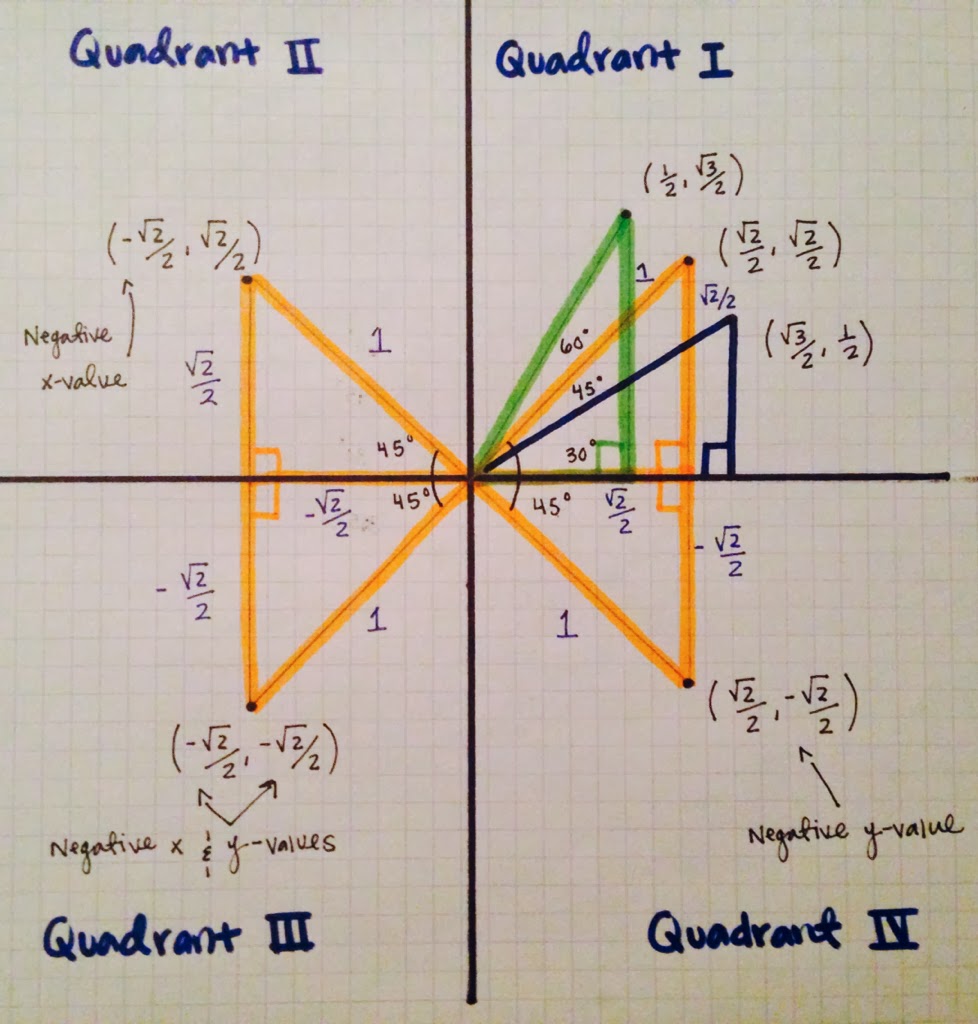 Quadrant II
Quadrant I
(1/2, √3/2)
(-√2/2, √2/2)
(√2/2, √2/2)
1
√2/2
Negative
x-value
1
(√3/2, 1/2)
√2/2
60°
45°
45°
30°
45°
-√2/2
45°
√2/2
-√2/2
-√2/2
1
1
(√2/2, -√2/2)
(-√2/2, -√2/2)
Negative x & y-values
Negative y-value
Quadrant III
Quadrant IV